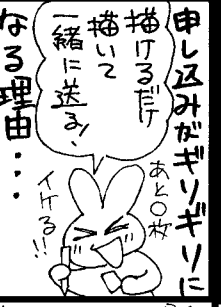 申し込みがギリギリに
なる理由・・・
描けるだけ
描いて
一緒に送る!
あと○枚
イける!!